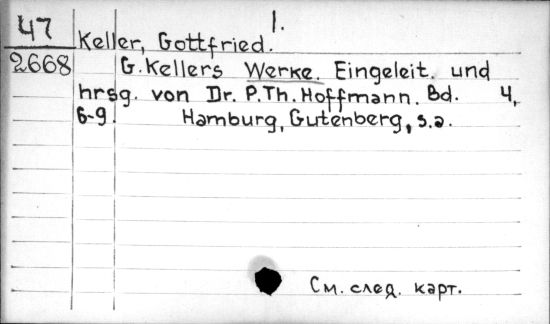 1.
47
Keller, Gottfried.
2668
G. Kellers Werke. Eingeleit. und
hrsg. von Dr. P. Th. Hoffmann. Bd. 4,
6-9. Hamburg, Gutenberg, s.a.
См. след. карт.